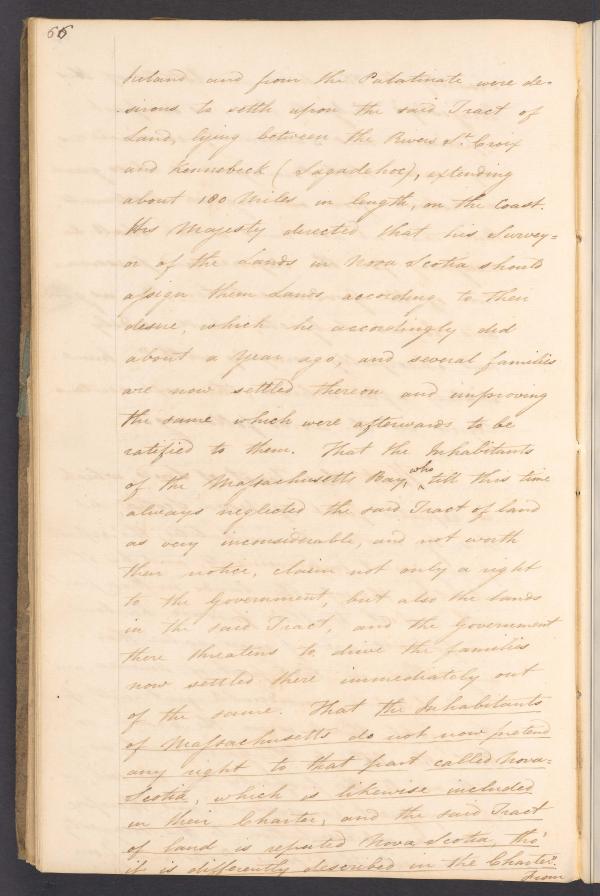 66
Ireland and from the Palatinate were de-
sirous to settle upon the said Tract of
Land, lying between the Rivers St. Croix
and Kennebeck (Sagadehoc), extending
about 180 Miles in length, on the Coast.
His Majesty directed that his Survey=
or of the Lands in Nova Scotia should
assign them Lands according to their
desire, which he accordingly did
about a year ago, and several families
are now settled thereon and improving
the same which were afterwards to be
ratified to them. That the Inhabitants
of the Massachusetts Bay, who till this time
always neglected the said Tract of land
as very inconsiderable, and not worth
their notice, claim not only a right
to the Government, but also the lands
in the said Tract, and the Government
there threatens to drive the families
now settled there immediately out
of the same. That the Inhabitants
of Massachusetts do not now pretend
any right to that part called Nova-
Scotia, which is likewise included
in their Charter, and the said Tract
of land is reputed Nova Scotia, tho'
it is differently described in the Charter.
From